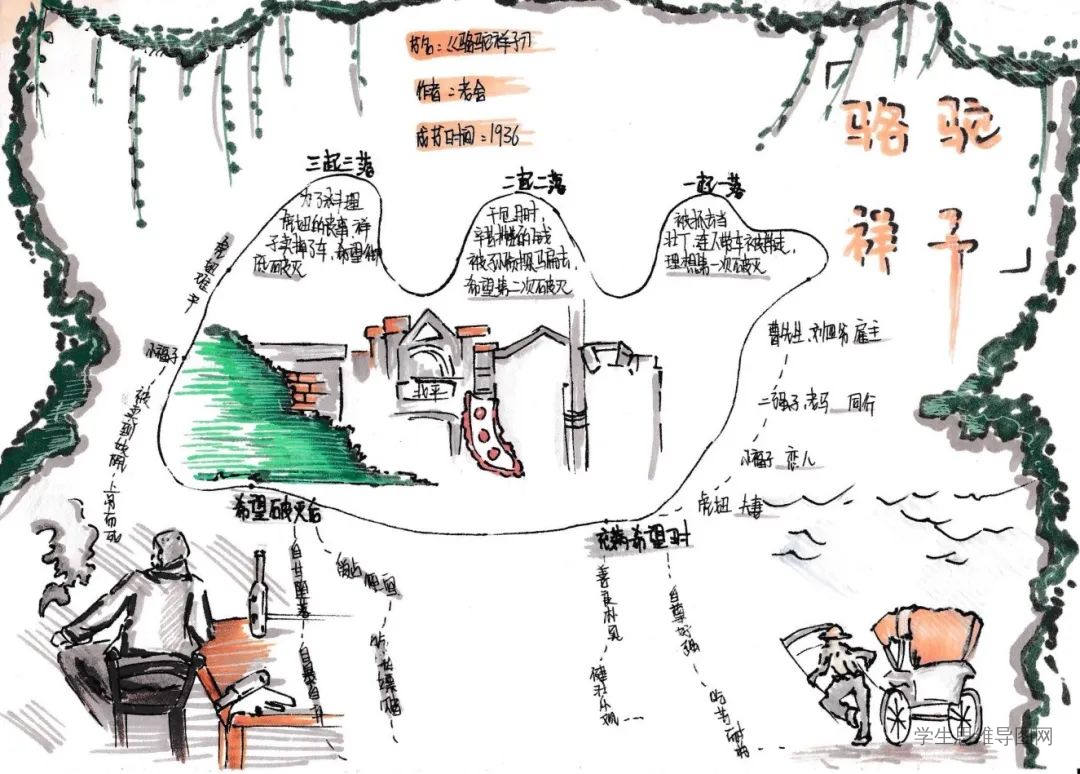 书名:《骆驼祥子》
作者:老舍
成书时间:1936
「骆驼
祥子」
三起三落
为了料理
虎妞的丧事,祥
子卖掉了车,希望彻
底破灭
二起二落
干包月时,
辛苦攒的钱
被孙侦探骗去,
希望第二次破灭
一起一落
被抓去当
壮丁,连人带车被掳走,
理想第一次破灭
虎妞难产
小福子
被卖到妓院,上吊而死
北平
曹先生、刘四爷 雇主
二强子、老马 同行
小福子 恋人
虎妞 夫妻
希望破灭后
自甘堕落
自暴自
吃喝嫖赌
充满希望时
善良朴实
健壮乐观
自尊好强
吃苦耐劳
学生思维导图网